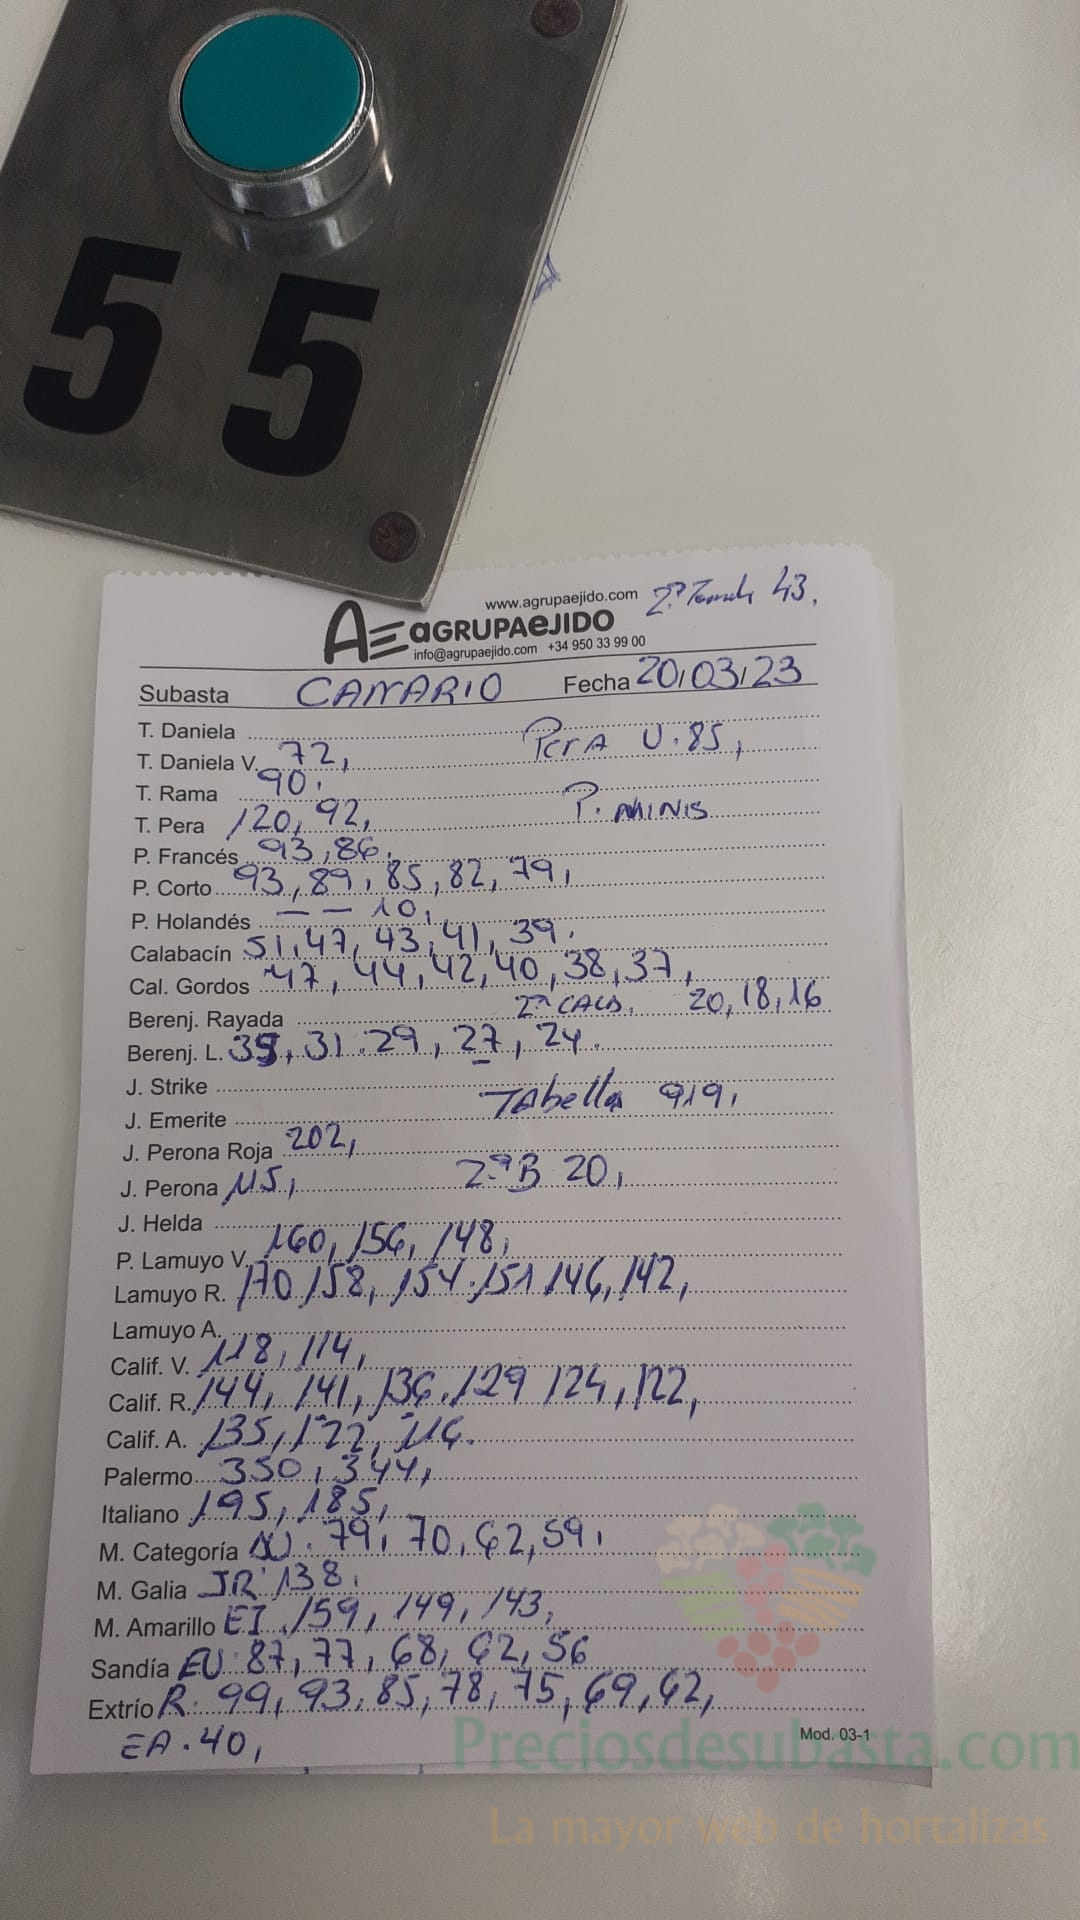 55
www.agrupaejido.com
43.
AE aGRUPAeJIDO
info@agrupaejido.com +34 950 33 99 00
Subasta CANARIO Fecha 20/03/23
T. Daniela
Pera U. 85,
T. Daniela V. 72,
T. Rama 90.
T. Pera 120, 92, P. MINIS
P. Francés 93, 86,
P. Corto 93, 89, 85, 82, 79,
P. Holandés — — 10,
Calabacín 51, 47, 43, 41, 39.
Cal. Gordos 47, 44, 42, 40, 38, 37,
Berenj. Rayada 2ª CALB. 20, 18, 16
Berenj. L. 35, 31. 29, 27, 24.
J. Strike
J. Emerite Tabella 919,
J. Perona Roja 202,
J. Perona 115, 2ªB 20,
J. Helda
P. Lamuyo V. 160, 156, 148,
Lamuyo R. 170 158, 154. 151 146, 142,
Lamuyo A.
Calif. V. 118, 114,
Calif. R. 144, 141, 136, 129 124, 122,
Calif. A. 135, 122, 116.
Palermo 350, 344,
Italiano 195, 185,
M. Categoría 79, 70, 62, 59,
M. Galia JR 138.
M. Amarillo EI. 159, 149, 143,
Sandía EU 87, 77, 68, 62, 56
Extrío R. 99, 93, 85, 78, 75, 69, 62,
EA. 40,
Mod. 03-1
Preciosdesubasta.com
La mayor web de hortalizas